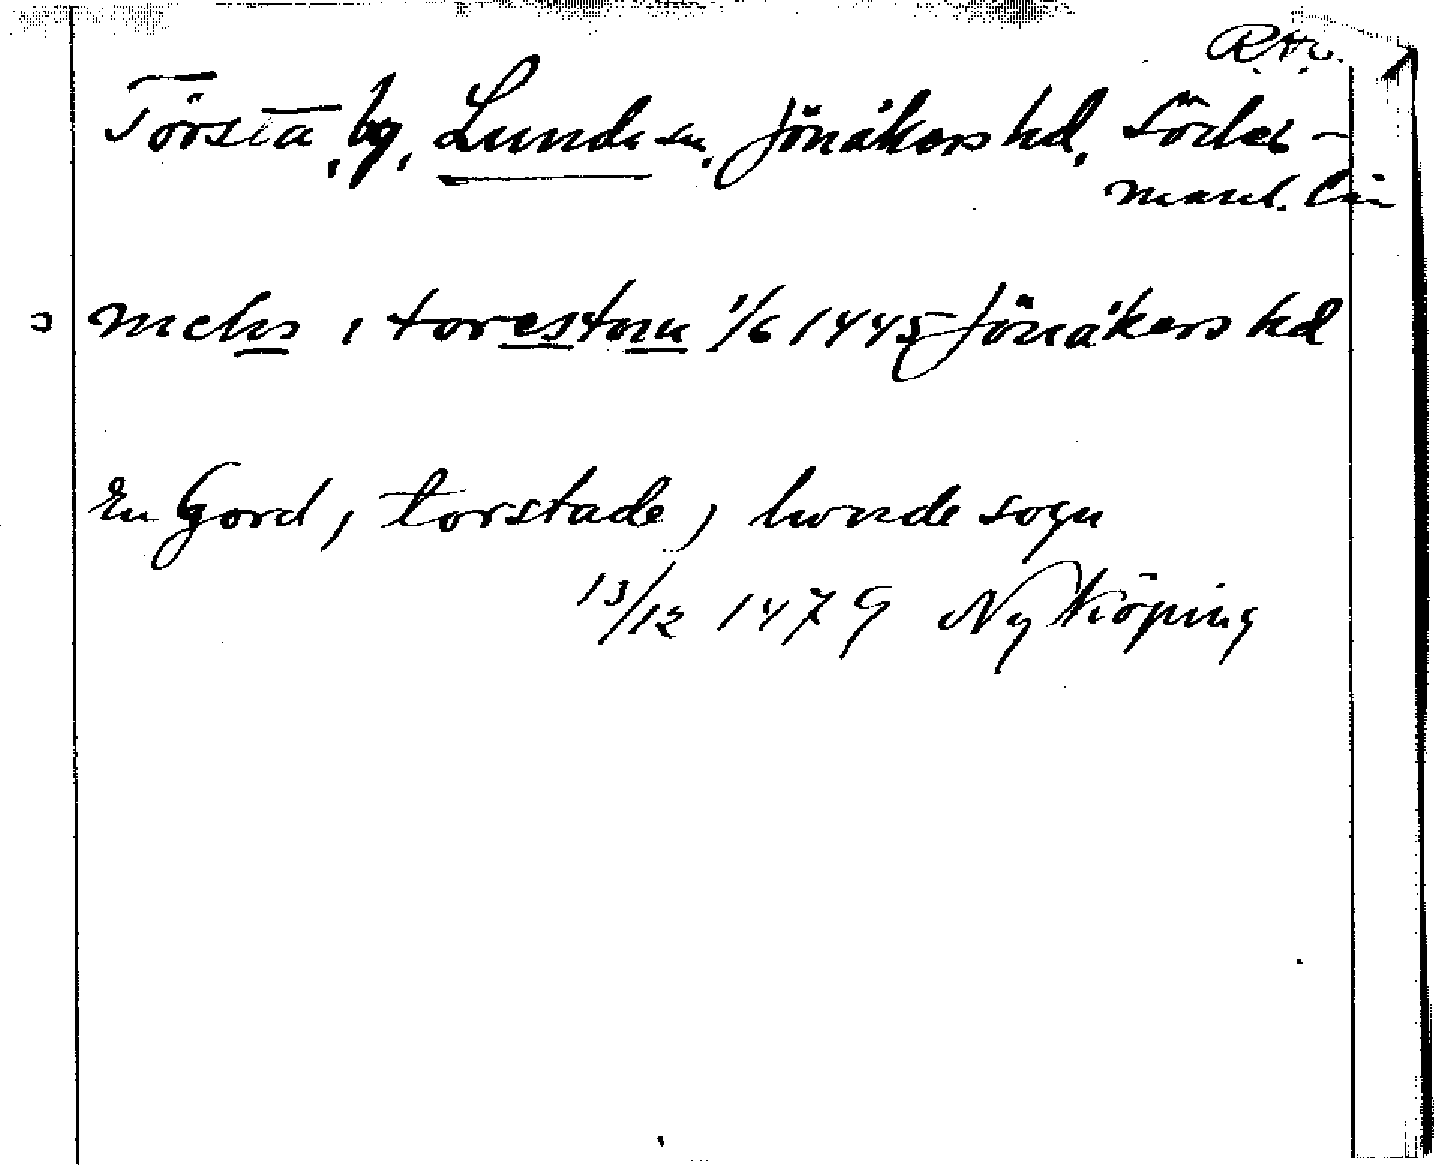 R.A.
Törsta, by, Lunda sn, Jönåkers hd, Söder-
manl. län
niclis i torestom 1/6 1445 Jönåkers hd
En Gord, torstade, lwnde sogn
13/12 1479 Nyköping